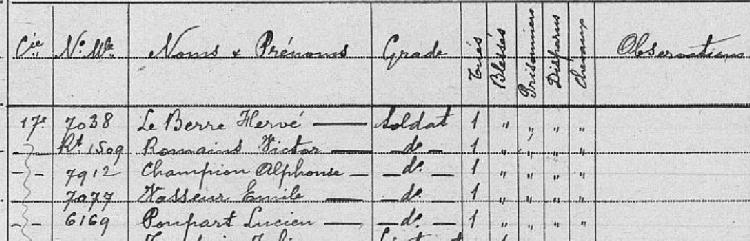 Cie N° Mle Noms & Prénoms Grade Tués Blessés Prisonniers Disparus Chevaux Observations
17e 7038 Le Berre Hervé — Soldat 1 " " " "
-"- Rt 1509 Romains Victor — -do- 1 " " " "
-"- 7912 Champion Alphonse — -do- 1 " " " "
-"- 7077 Vasseur Emile — -do- 1 " " " "
-"- 6169 Poupart Lucien — -do- 1 " " " "